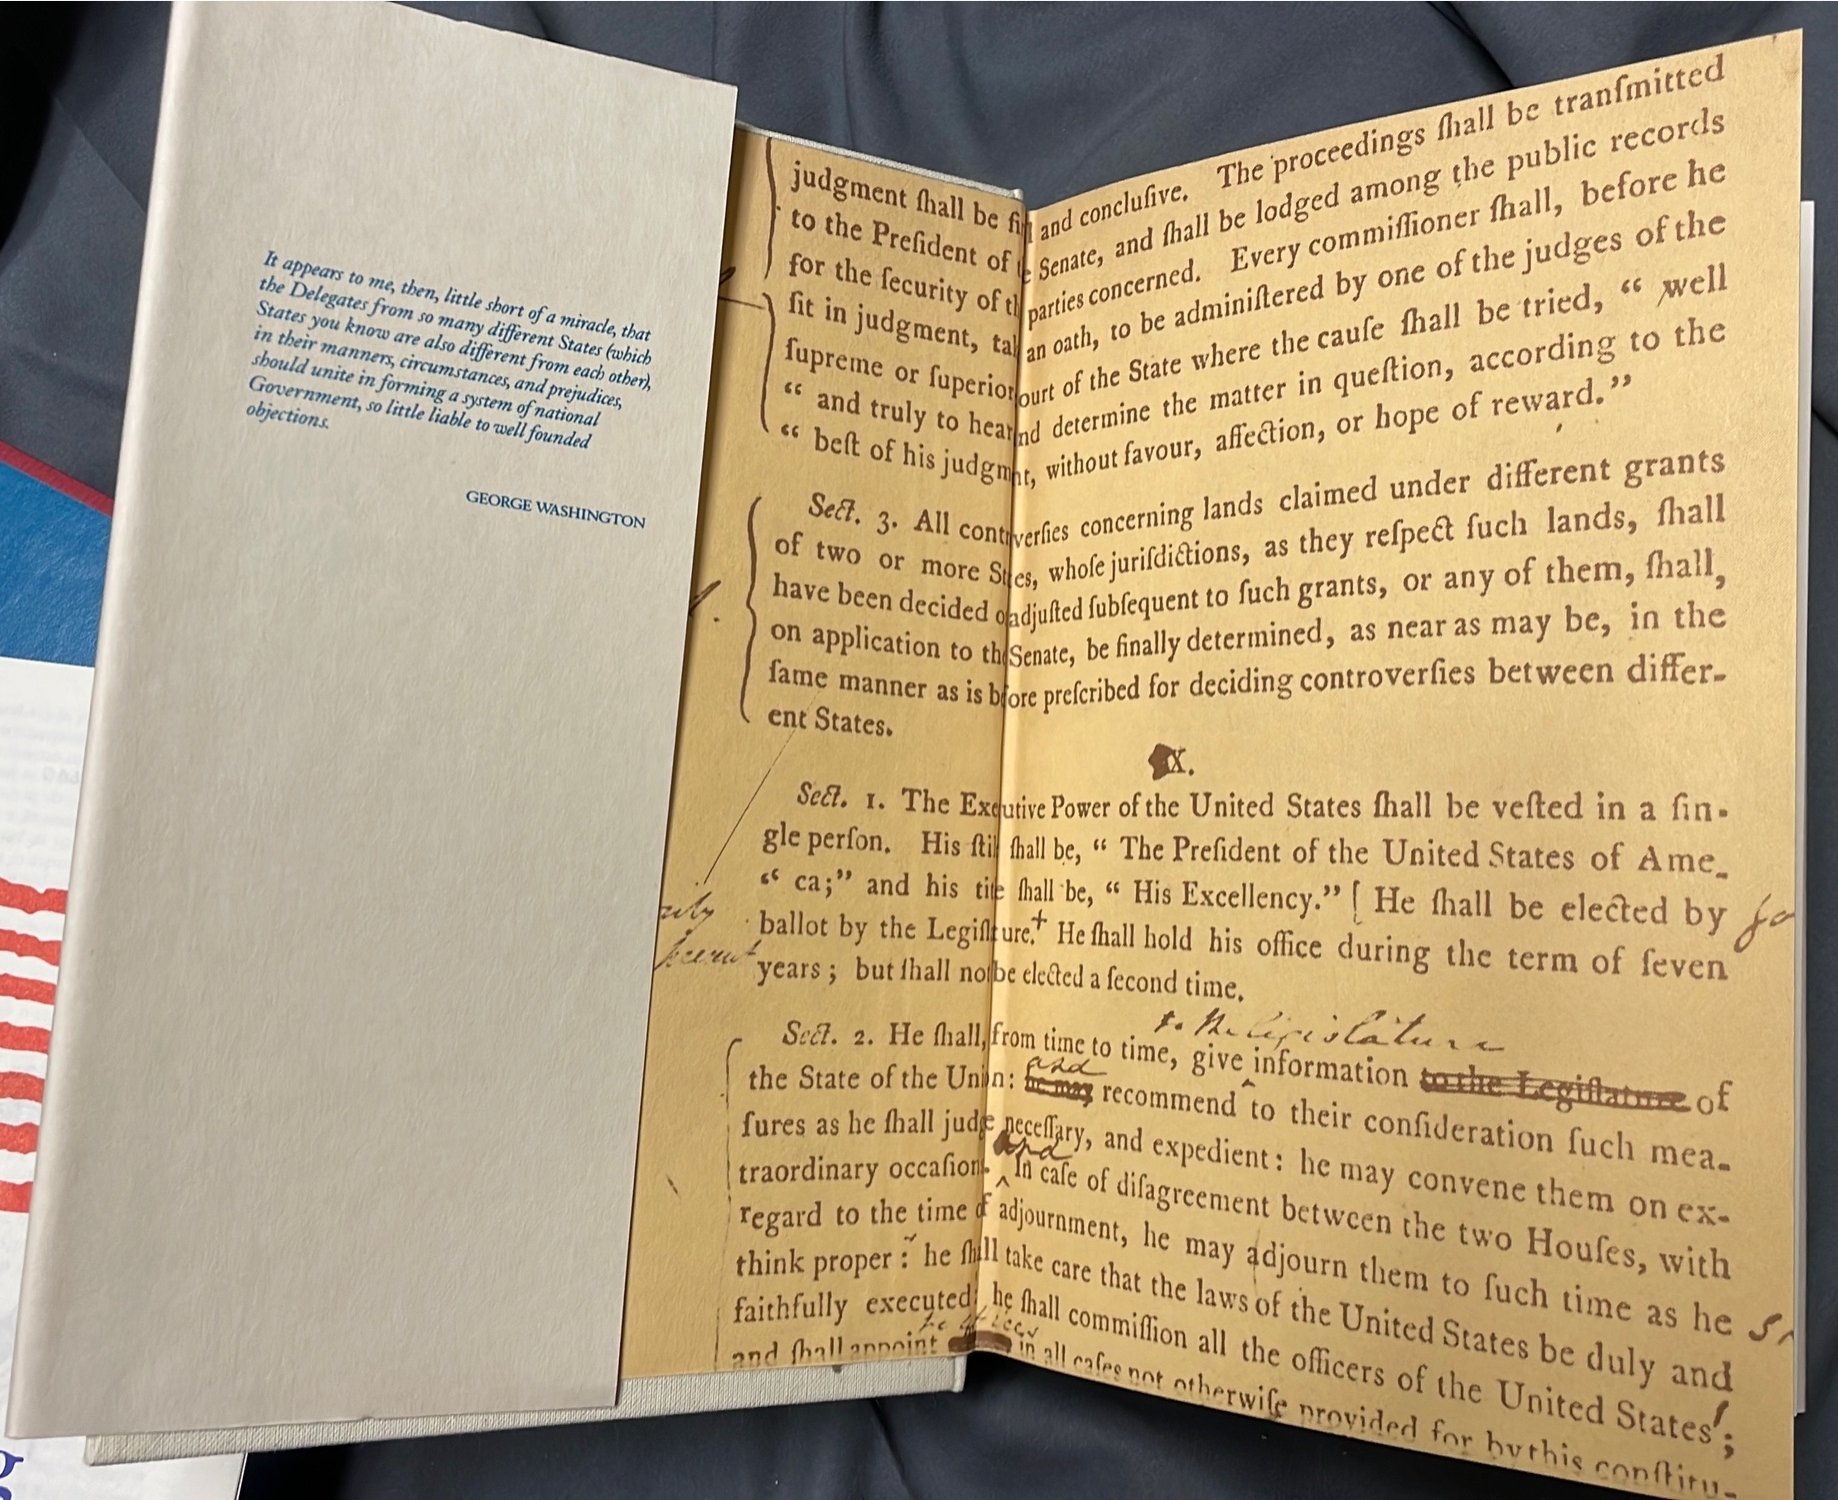 It appears to me, then, little short of a miracle, that
the Delegates from so many different States (which
States you know are also different from each other),
in their manners, circumstances, and prejudices,
should unite in forming a system of national
Government, so little liable to well founded
objections.
GEORGE WASHINGTON
judgment ſhall be fi l and concluſive. The proceedings ſhall be tranſmitted
to the Preſident of e Senate, and ſhall be lodged among the public records
for the ſecurity of th parties concerned. Every commiſſioner ſhall, before he
ſit in judgment, ta an oath, to be adminiſtered by one of the judges of the
ſupreme or ſuperior ourt of the State where the cauſe ſhall be tried, “ well
“ and truly to hear nd determine the matter in queſtion, according to the
“ beſt of his judgm nt, without favour, affection, or hope of reward.”
Sect. 3. All contr verſies concerning lands claimed under different grants
of two or more St es, whoſe juriſdictions, as they reſpect ſuch lands, ſhall
have been decided o adjuſted ſubſequent to ſuch grants, or any of them, ſhall,
on application to th Senate, be finally determined, as near as may be, in the
ſame manner as is b fore preſcribed for deciding controverſies between differ-
ent States.
X.
Sect. 1. The Executive Power of the United States ſhall be veſted in a ſin-
gle perſon. His ſtil ſhall be, “ The Preſident of the United States of Ame-
“ ca;” and his title ſhall be, “ His Excellency.” [ He ſhall be elected by
ballot by the Legiſlature.+ He ſhall hold his office during the term of ſeven
years ; but ſhall not be elected a ſecond time.
to the Legislature
Sect. 2. He ſhall, from time to time, give information to the Legiſlature of
and
the State of the Union: he may recommend to their conſideration ſuch mea-
ſures as he ſhall judge neceſſary, and expedient: he may convene them on ex-
and
traordinary occaſions. In caſe of diſagreement between the two Houſes, with
regard to the time of adjournment, he may adjourn them to ſuch time as he
think proper : he ſhall take care that the laws of the United States be duly and
faithfully executed: he ſhall commiſſion all the officers of the United States ;
to offices
and ſhall appoint in all caſes not otherwiſe provided for by this conſtitu-